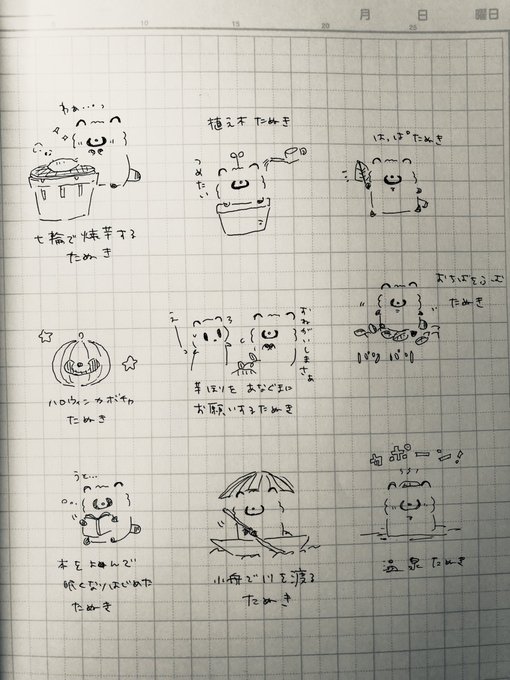 10 15 20 25
月 日 曜日
わぁ…っ
七輪で焼芋する
たぬき
植え木 たぬき
つめたい
はっぱ たぬき
ハロウィンカボチャ
たぬき
え
おねがいしまさぁ
芋ほりを あなぐまに
お願いするたぬき
おちばをふむ
たぬき
パリ パリ
うと…
本をよんで
眠くなりはじめた
たぬき
小舟で川を渡る
たぬき
カポーン!
温泉 たぬき